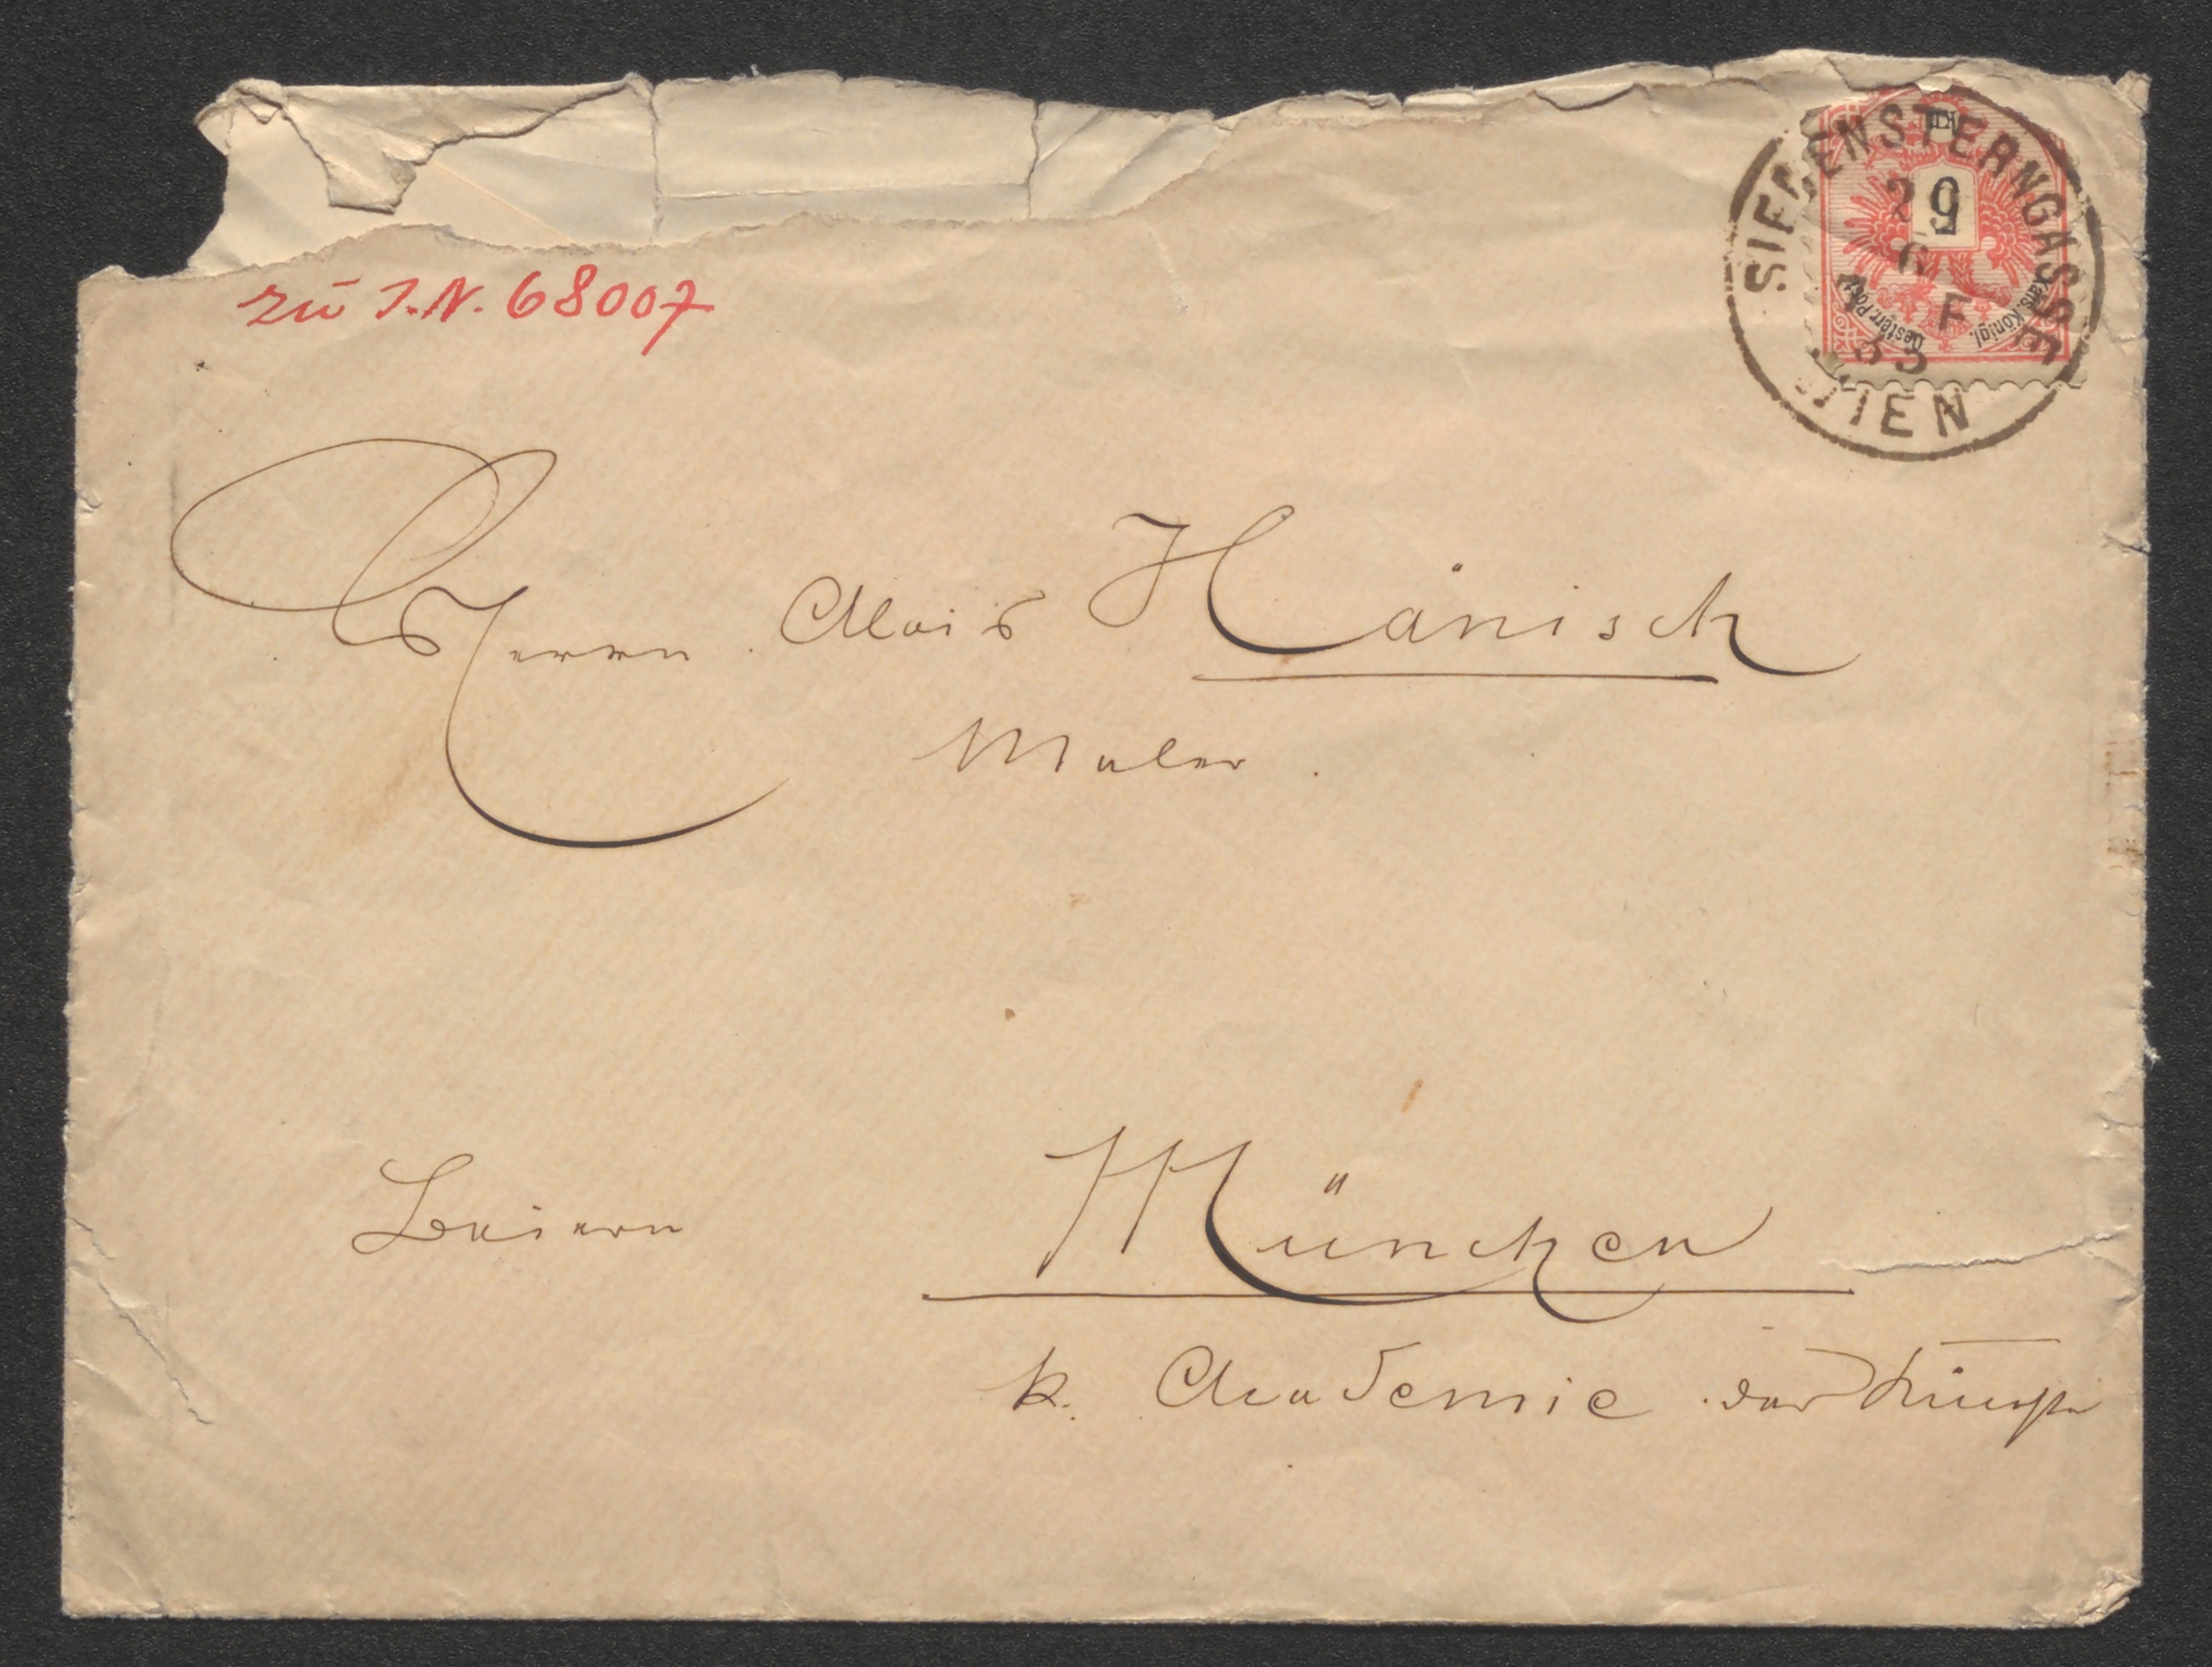 zu I.N. 68007
SIEBENSTERNGASSE
WIEN
5
Kais. Königl.
Oesterr. Post
Herrn Alois Hänisch
Maler.
Baiern München
k. Academie der Künste